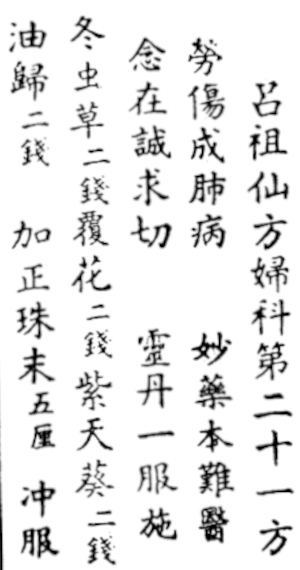 呂祖仙方婦科第二十一方
勞傷成肺病 妙藥本難醫
念在誠求切 靈丹一服施
冬虫草二錢覆花二錢紫天葵二錢
油歸二錢 加正珠末五厘 冲服